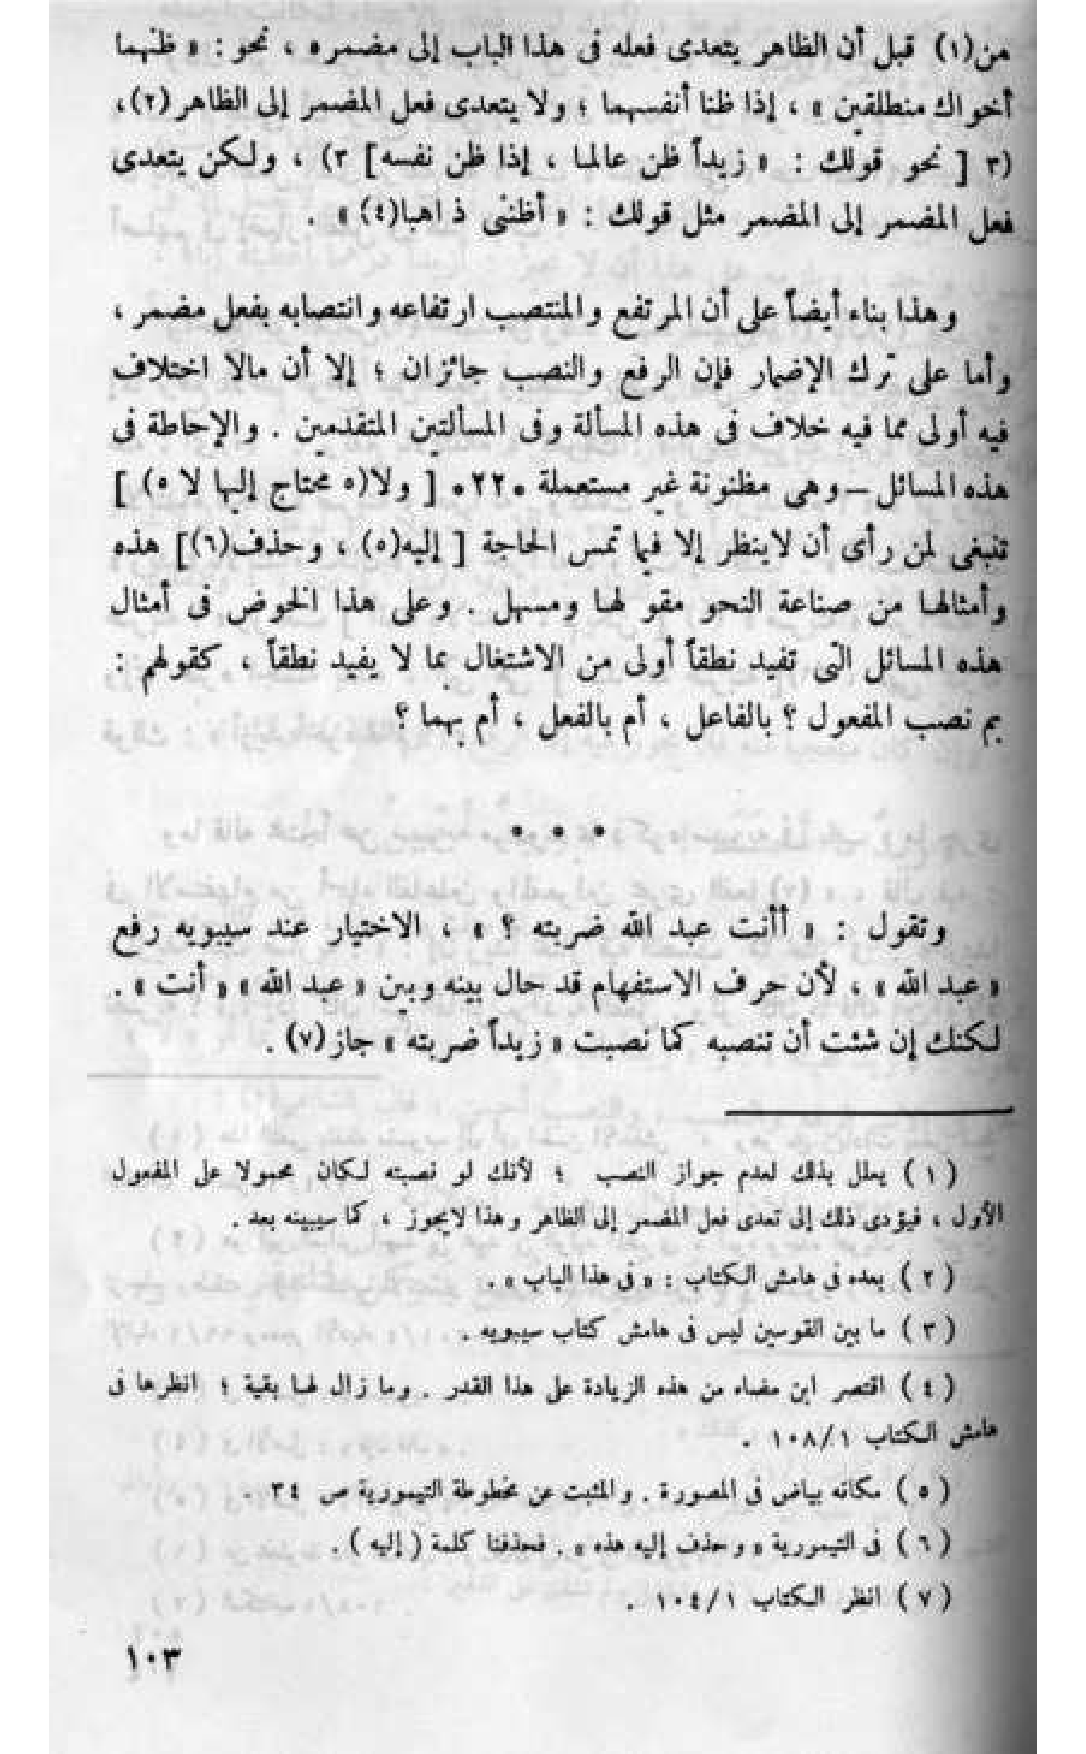 من(١) قبل أن الظاهر يتعدى فعله فى هذا الباب إلى مضمره ، نحو : « ظنهما
أخواك منطلقين » ، إذا ظنا أنفسهما ؛ ولا يتعدى فعل المضمر إلى الظاهر(٢)،
(٣ [ نحو قولك : « زيداً ظن عالما ، إذا ظن نفسه] ٣) ، ولكن يتعدى
فعل المضمر إلى المضمر مثل قولك : « أظننى ذاهبا(٤) » .
وهذا بناء أيضاً على أن المرتفع والمنتصب ارتفاعه وانتصابه بفعل مضمر ،
وأما على ترك الإضمار فإن الرفع والنصب جائزان ؛ إلا أن مالا اختلاف
فيه أولى مما فيه خلاف فى هذه المسألة وفى المسألتين المتقدمين . والإحاطة فى
هذه المسائل – وهى مظنونة غير مستعملة *٢٢* [ ولا(٥ محتاج إليها لا ٥) ]
تنبغى لمن رأى أن لاينظر إلا فيما تمس الحاجة [ إليه(٥) ، وحذف(٦)] هذه
وأمثالها من صناعة النحو مقو لها ومسهل . وعلى هذا الخوض فى أمثال
هذه المسائل التى تفيد نطقاً أولى من الاشتغال بما لا يفيد نطقاً ، كقولهم :
بم نصب المفعول ؟ بالفاعل ، أم بالفعل ، أم بهما ؟
* * *
وتقول : « أأنت عبد الله ضربته ؟ » ، الاختيار عند سيبويه رفع
« عبد الله » ، لأن حرف الاستفهام قد حال بينه وبين « عبد الله » « أنت » .
لكنك إن شئت أن تنصبه كما نصبت « زيداً ضربته » جاز(٧) .
( ١ ) يعلل بذلك لعدم جواز النصب ؛ لأنك لو نصبته لكان محمولا على المفعول
الأول ، فيؤدى ذلك إلى تعدى فعل المضمر إلى الظاهر وهذا لايجوز ، كما سيبينه بعد .
( ٢ ) بعده فى هامش الكتاب : « فى هذا الباب » .
( ٣ ) ما بين القوسين ليس فى هامش كتاب سيبويه .
( ٤ ) اقتصر ابن مضاء من هذه الزيادة على هذا القدر . وما زال لها بقية ؛ انظرها فى
هامش الكتاب ١٠٨/١ .
( ٥ ) مكانه بياض فى المصورة . والمثبت عن مخطوطة التيمورية ص ٣٤ .
( ٦ ) فى التيمورية « وحذف إليه هذه » . فحذفنا كلمة ( إليه ) .
( ٧ ) انظر الكتاب ١٠٤/١ .
١٠٣